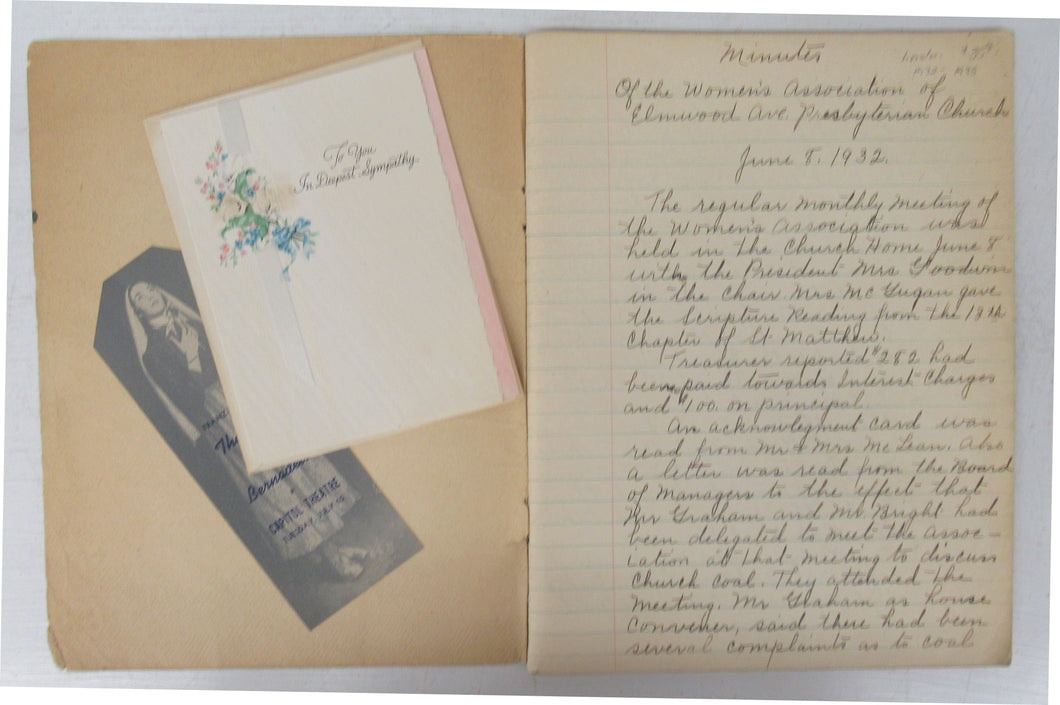 To You
In Deepest Sympathy
The
Bernadette
CAPITOL THEATRE
TUESDAY
Minutes
London
1932 - 1935
Of the Women's Association of
Elmwood Ave. Presbyterian Church
June 8. 1932.
The regular monthly meeting of
the Women's Association was
held in the Church Home June 8
with the President Mrs Goodwin
in the chair. Mrs McGugan gave
the Scripture Reading from the 13th
Chapter of St Matthew.
Treasurer reported $282 had
been paid towards Interest Charges
and $100. on principal.
An acknowlegment card was
read from Mr & Mrs McLean. Also
a letter was read from the Board
of Managers to the effect that
Mr Graham and Mr. Bright had
been delegated to meet the Assoc-
iation at that meeting to discuss
Church coal. They attended the
meeting. Mr Graham as house
convener, said there had been
several complaints as to coal